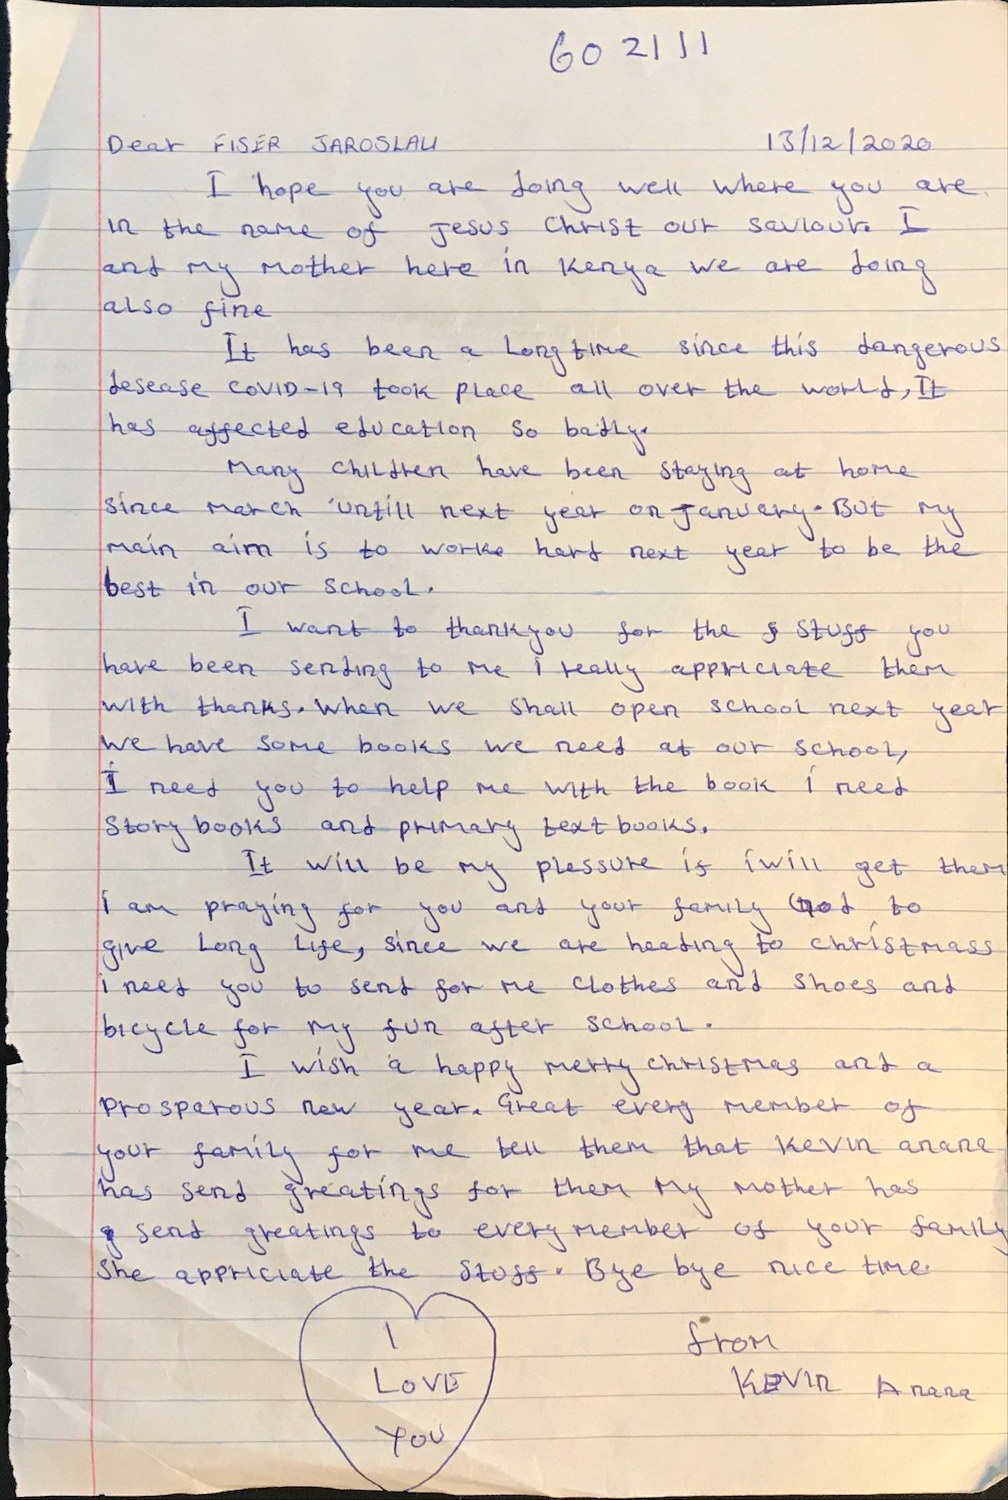 602111
Dear FISER JAROSLAU 13/12/2020
I hope you are doing well where you are
in the name of Jesus Christ our saviour. I
and my mother here in Kenya we are doing
also fine
It has been a Longtime since this dangerous
desease COVID-19 took place all over the world, It
has affected education so badly.
Many children have been staying at home
since march untill next year on January. But my
main aim is to worke hard next year to be the
best in our school.
I want to thankyou for the stuff you
have been sending to me i really appriciate them
with thanks. When we shall open school next year
we have some books we need at our school,
I need you to help me with the book i need
story books and primary text books.
It will be my plessure if iwill get them
i am praying for you and your family God to
give Long Life, since we are heading to christmass
i need you to send for me clothes and shoes and
bicycle for my fun after school.
I wish a happy merry christmas and a
prosparous new year. Great every member of
your family for me tell them that Kevin anana
has send greatings for them My mother has
send greatings to every member of your family
She appriciate the stuff. Bye bye nice time.
I
LOVE
YOU
from
KEVIN Anana